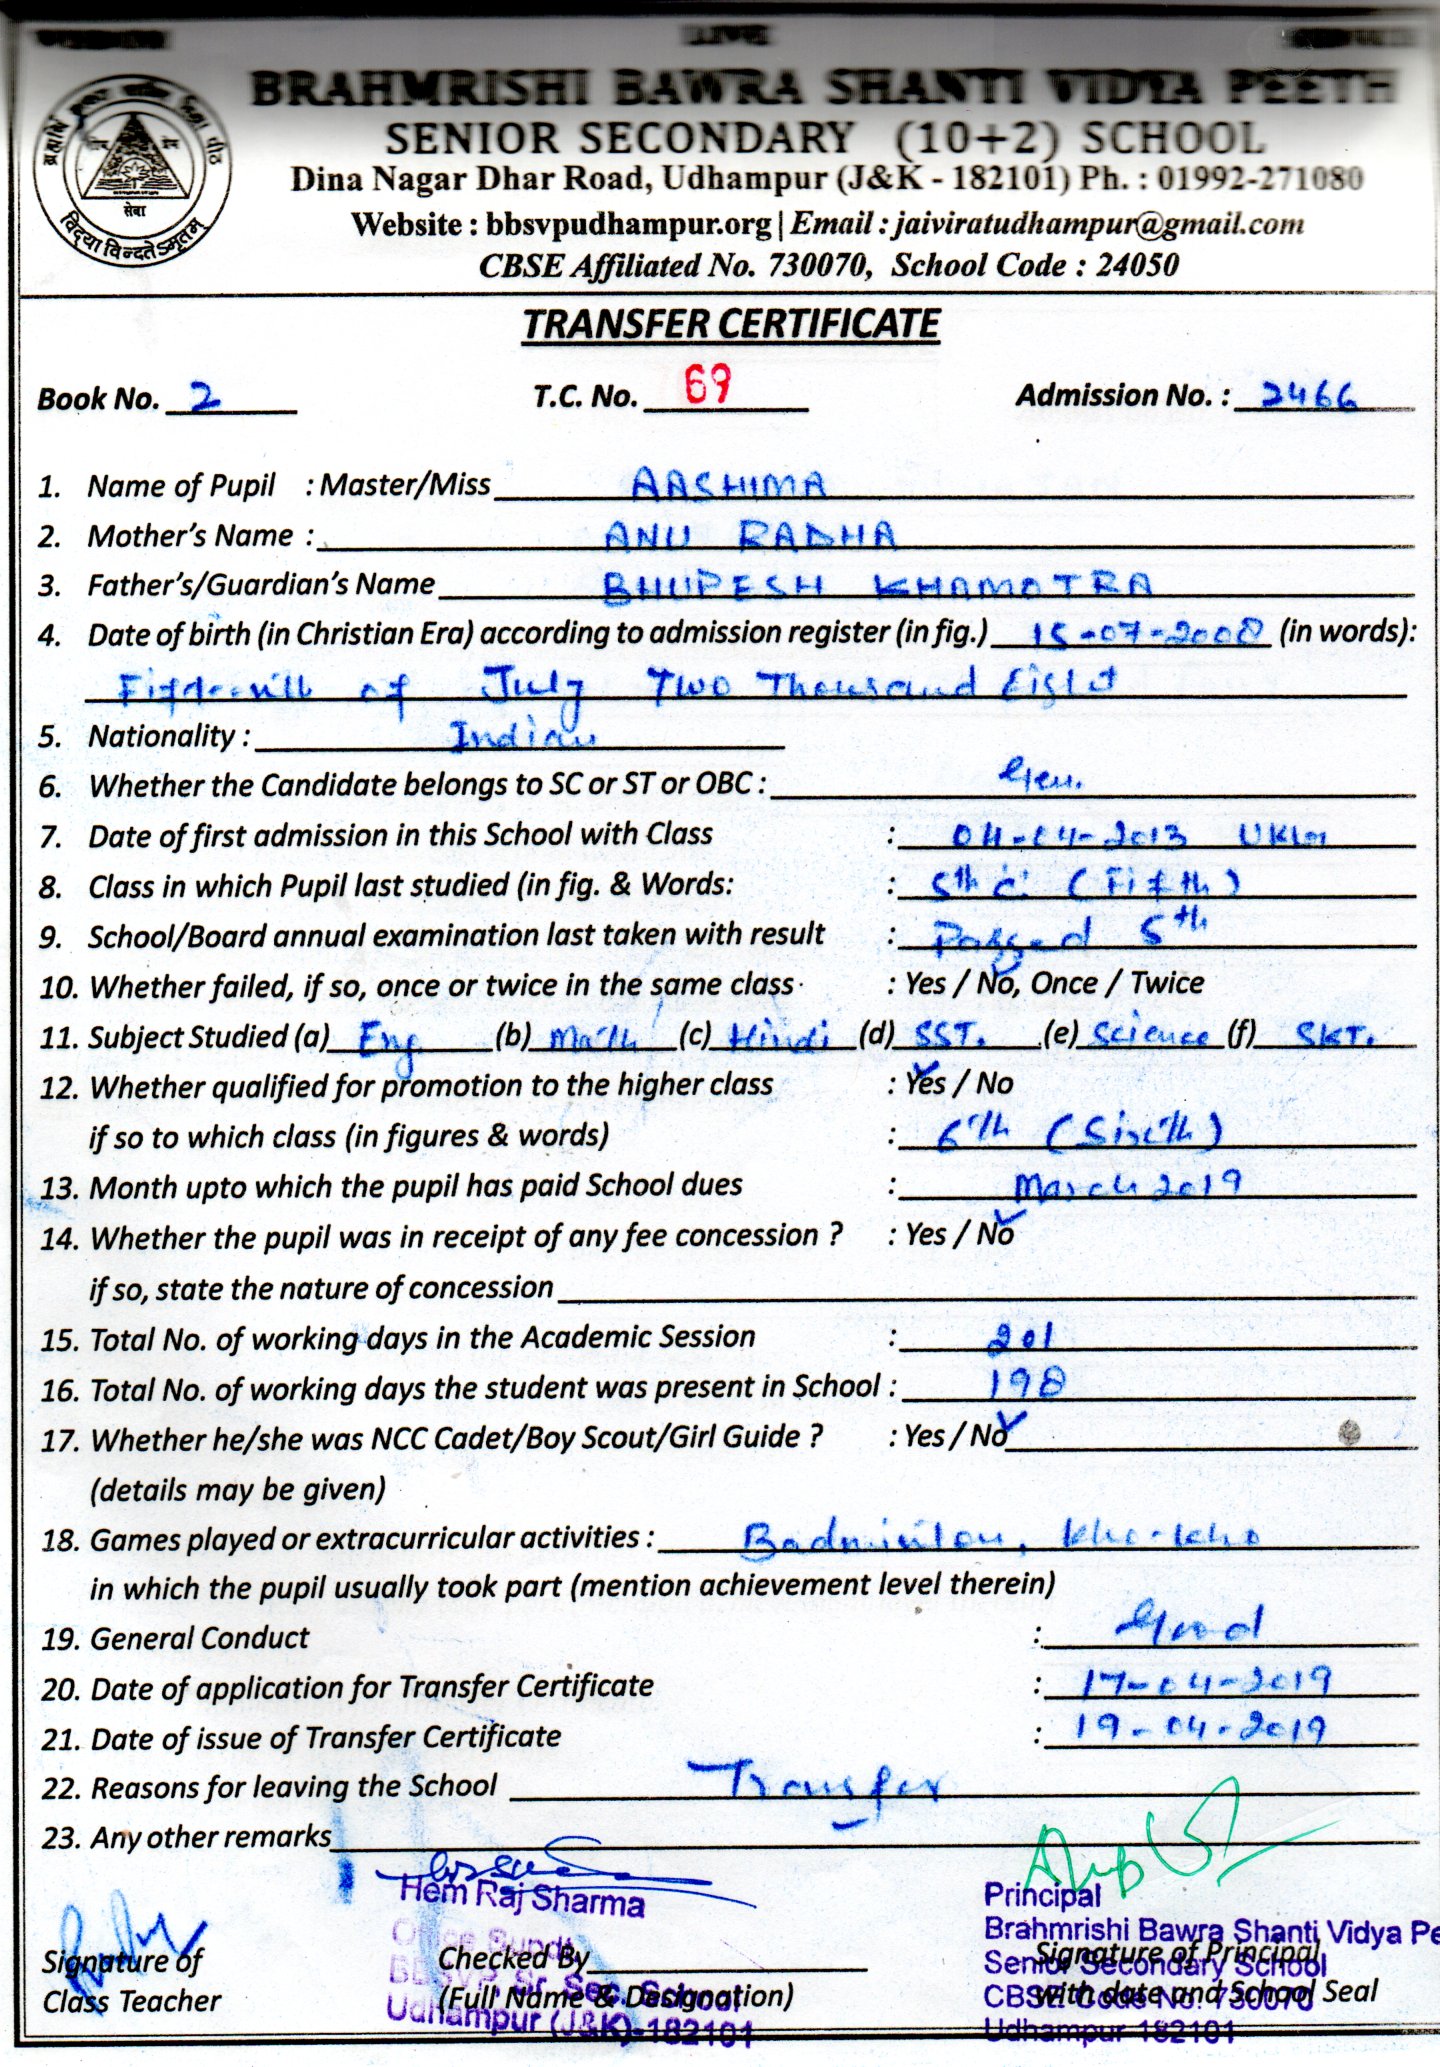 BRAHMRISHI BAWRA SHANTI VIDYA PEETH
SENIOR SECONDARY (10+2) SCHOOL
Dina Nagar Dhar Road, Udhampur (J&K - 182101) Ph. : 01992-271080
Website : bbsvpudhampur.org | Email : jaiviratudhampur@gmail.com
CBSE Affiliated No. 730070, School Code : 24050
सेवा
विद्या विन्दतेऽमृतम्
TRANSFER CERTIFICATE
Book No. 2 T.C. No. 69 Admission No. : 2466
1. Name of Pupil : Master/Miss AASHIMA
2. Mother's Name : ANU RADHA
3. Father's/Guardian's Name BHUPESH KHAMOTRA
4. Date of birth (in Christian Era) according to admission register (in fig.) 15-07-2008 (in words):
Fifteenth of July Two Thousand Eight
5. Nationality : Indian
6. Whether the Candidate belongs to SC or ST or OBC : Gen.
7. Date of first admission in this School with Class : 04-04-2013 UKG
8. Class in which Pupil last studied (in fig. & Words: : 5th C (Fifth)
9. School/Board annual examination last taken with result : Passed 5th
10. Whether failed, if so, once or twice in the same class : Yes / No, Once / Twice
11. Subject Studied (a) Eng (b) Math (c) Hindi (d) SST. (e) Science (f) SKT.
12. Whether qualified for promotion to the higher class : Yes / No
if so to which class (in figures & words) : 6th (Sixth)
13. Month upto which the pupil has paid School dues : March 2019
14. Whether the pupil was in receipt of any fee concession ? : Yes / No
if so, state the nature of concession
15. Total No. of working days in the Academic Session : 201
16. Total No. of working days the student was present in School : 198
17. Whether he/she was NCC Cadet/Boy Scout/Girl Guide ? : Yes / No
(details may be given)
18. Games played or extracurricular activities : Badminton, Kho-Kho
in which the pupil usually took part (mention achievement level therein)
19. General Conduct : Good
20. Date of application for Transfer Certificate : 17-04-2019
21. Date of issue of Transfer Certificate : 19-04-2019
22. Reasons for leaving the School Transfer
23. Any other remarks
Hem Raj Sharma
Office Supdt.
BBSVP Sr. Sec. School
Udhampur (J&K)-182101
Principal
Brahmrishi Bawra Shanti Vidya Pe
Senior Secondary School
CBSE Code No. 730070
Udhampur 182101
Signature of Class Teacher
Checked By
(Full Name & Designation)
Signature of Principal
with date and School Seal